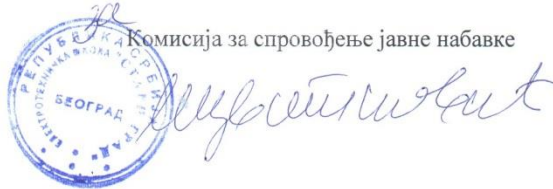 за
Комисија за спровођење јавне набавке
РЕПУБЛИКА СРБИЈА
ЕЛЕКТРОТЕХНИЧКА ШКОЛА "СТАРИ ГРАД"
БЕОГРАД